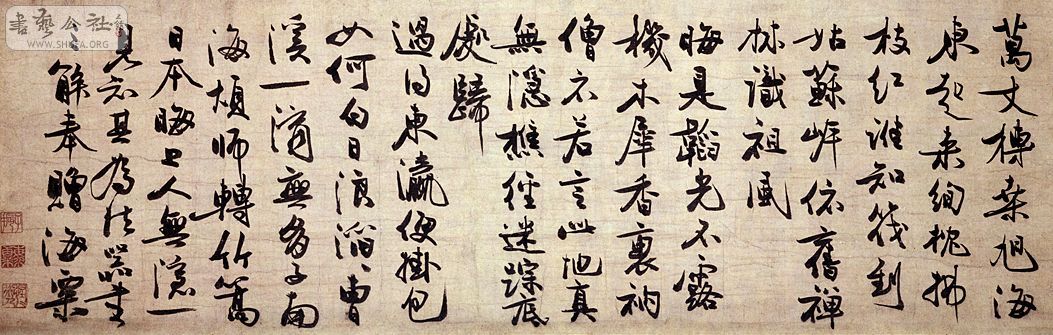 書藝公社
WWW.SHUFA.ORG
萬丈榑桑旭海
東起来絢
拂
枝紅誰知筏到
姑蘇岸依舊禅
林識祖風
晦是韜光不露
機木犀香裏衲
僧衣若言此地真
無隱樵徑迷踪底
處歸
過得東瀛便掛包
如何白日浪滔〻曹
溪一滴無多子南
海煩師轉竹篙
日本晦上人無隱一
見知其為法器
解奉贈海粟